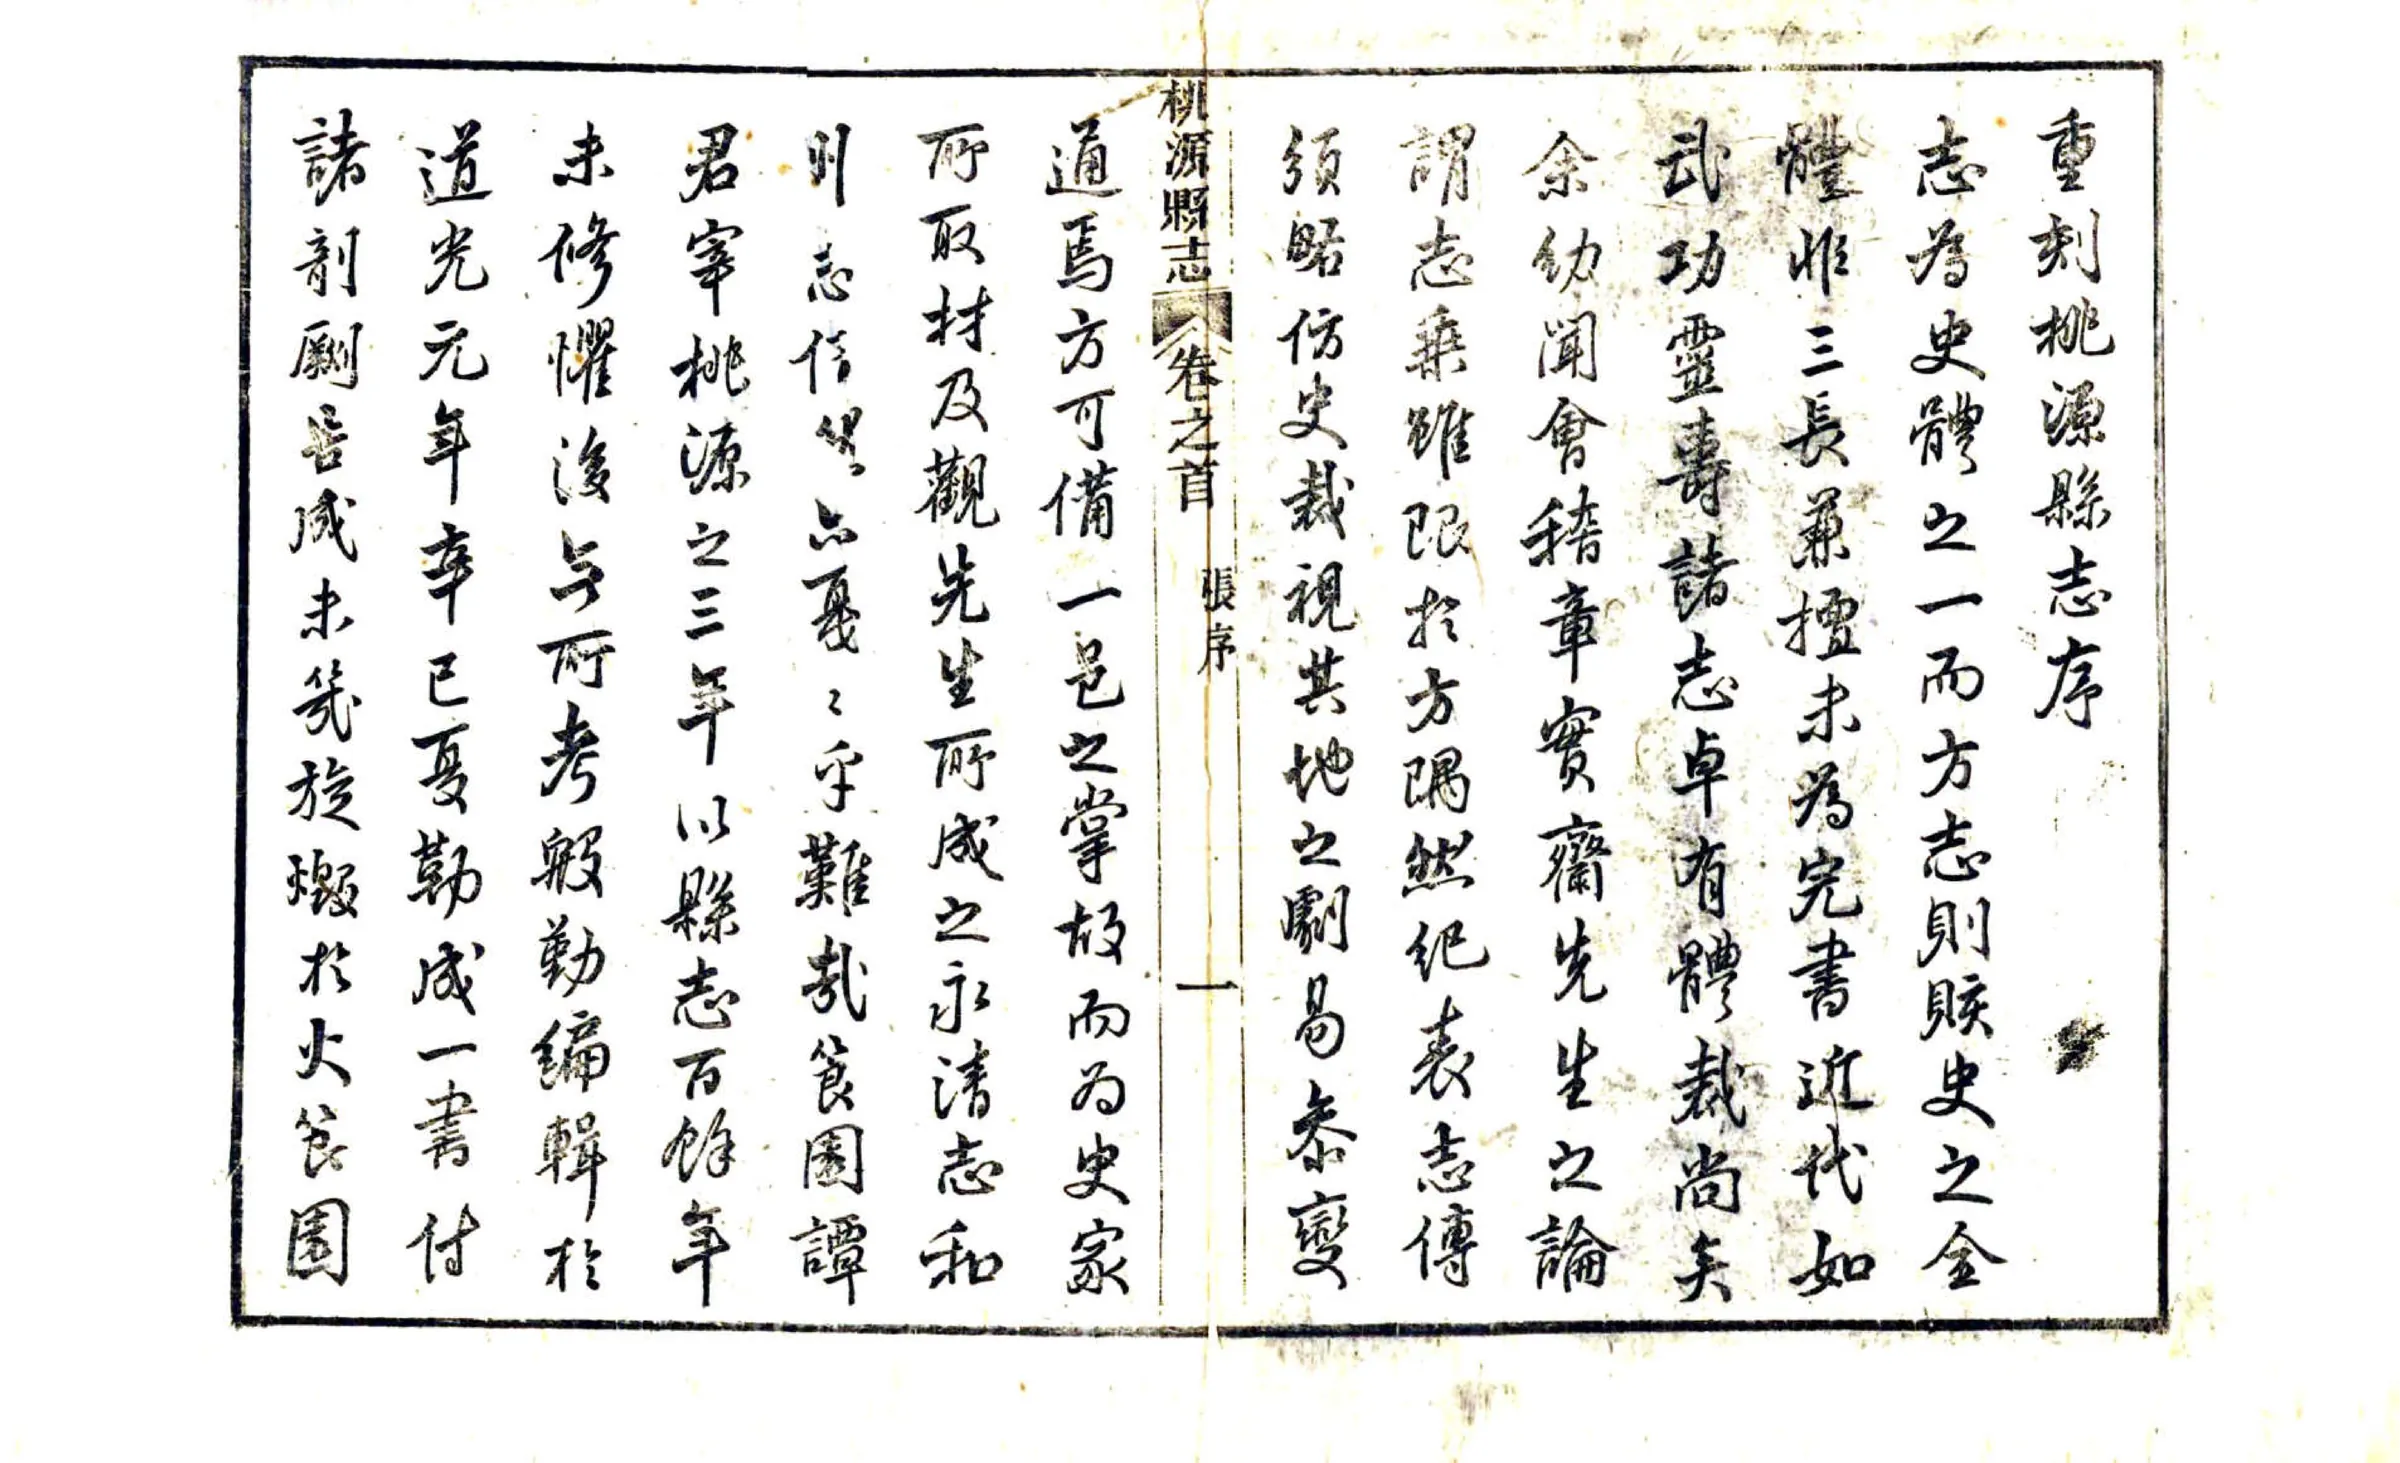 重刻桃源縣志序
志為史體之一而方志則賅史之全
體非三長兼擅未為完書近代如
武功靈壽諸志卓有體裁尚矣
余幼聞會稽章實齋先生之論
謂志乘雖限於方隅然紀表志傳
須略仿史裁視其地之劇易泰變
桃源縣志
卷之首
張序
一
通焉方可備一邑之掌故而為史家
所取材及觀先生所成之永清志和
州志信然亦戛〻乎難哉筤園譚
君宰桃源之三年以縣志百餘年
未修懼後無所考殷勤編輯於
道光元年辛巳夏勒成一書付
諸剞劂告成未幾旋燬於火筤園